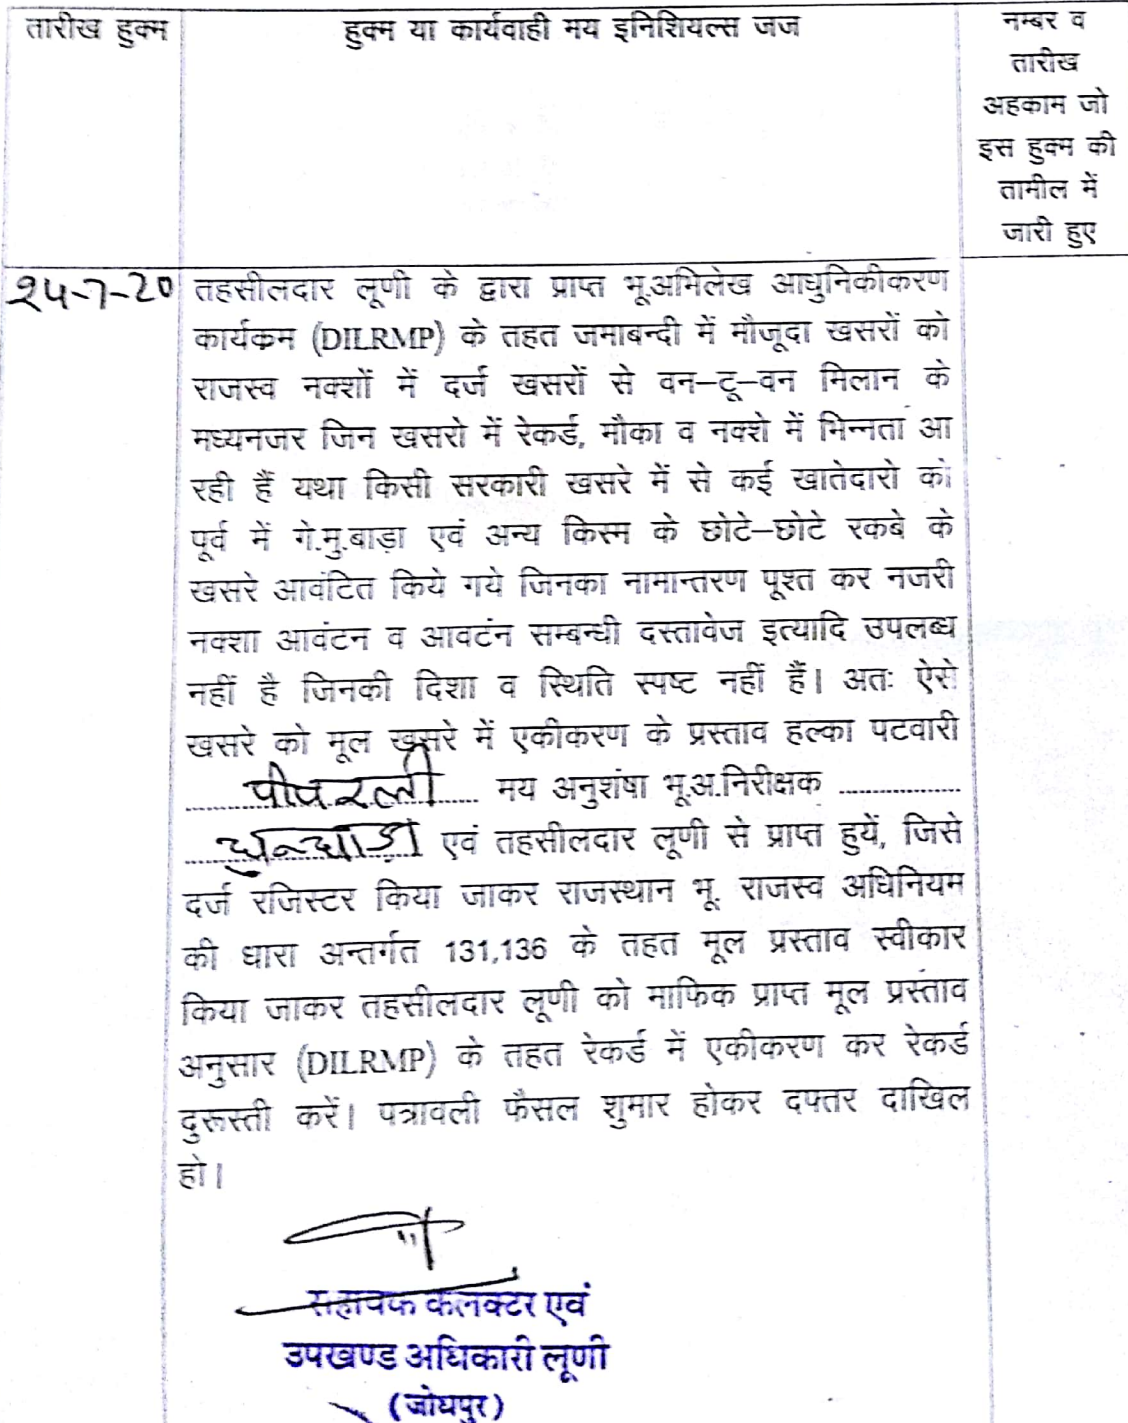 तारीख हुक्म
हुक्म या कार्यवाही मय इनिशियल्स जज
नम्बर व
तारीख
अहकाम जो
इस हुक्म की
तामील में
जारी हुए
24-7-20
तहसीलदार लूणी के द्वारा प्राप्त भू.अभिलेख आधुनिकीकरण
कार्यकम (DILRMP) के तहत जमाबन्दी में मौजूदा खसरों को
राजस्व नक्शों में दर्ज खसरों से वन–टू–वन मिलान के
मध्यनजर जिन खसरो में रेकर्ड, मौका व नक्शे में भिन्नता आ
रही हैं यथा किसी सरकारी खसरे में से कई खातेदारो को
पूर्व में गे.मु.बाड़ा एवं अन्य किस्म के छोटे–छोटे रकबे के
खसरे आवंटित किये गये जिनका नामान्तरण पूश्त कर नजरी
नक्शा आवंटन व आवटंन सम्बन्धी दस्तावेज इत्यादि उपलब्ध
नहीं है जिनकी दिशा व स्थिति स्पष्ट नहीं हैं। अतः ऐसे
खसरे को मूल खसरे में एकीकरण के प्रस्ताव हल्का पटवारी
पीपरली मय अनुशंषा भू.अ.निरीक्षक ..................
धुन्धाडा एवं तहसीलदार लूणी से प्राप्त हुयें, जिसे
दर्ज रजिस्टर किया जाकर राजस्थान भू. राजस्व अधिनियम
की धारा अन्तर्गत 131,136 के तहत मूल प्रस्ताव स्वीकार
किया जाकर तहसीलदार लूणी को माफिक प्राप्त मूल प्रस्ताव
अनुसार (DILRMP) के तहत रेकर्ड में एकीकरण कर रेकर्ड
दुरूस्ती करें। पत्रावली फैसल शुमार होकर दफ्तर दाखिल
हो।
सहायक कलक्टर एवं
उपखण्ड अधिकारी लूणी
(जोधपुर)